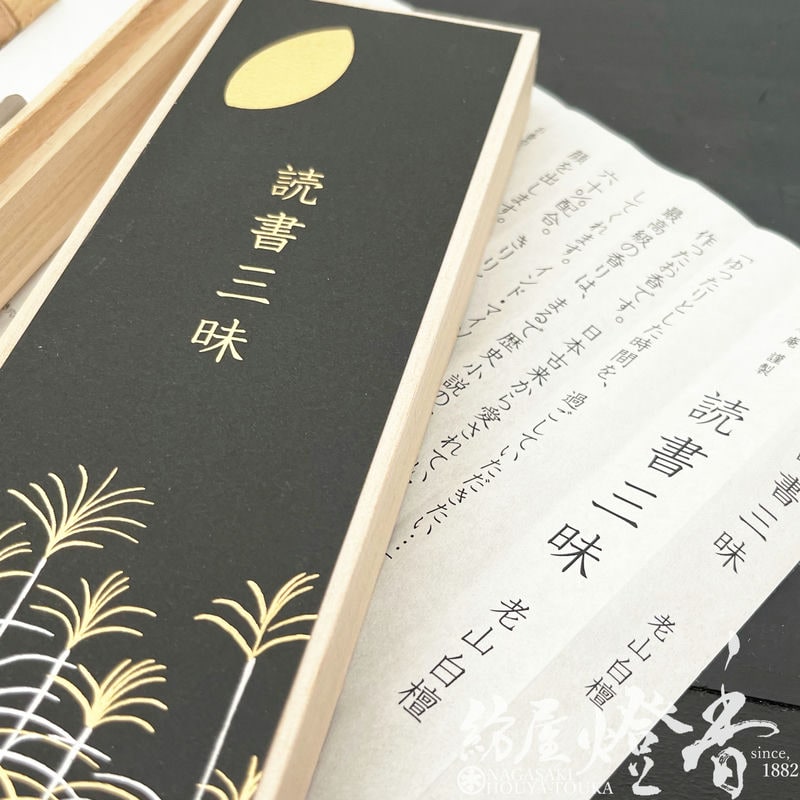 読書三昧
書三昧
老山白檀
読書三昧
老山白檀
庵 謹製
「ゆったりとした時間を、過ごしていただきたい…」
作ったお香です。日本古来から愛されてい
最高級の香りは、まるで歴史小説の
してくれます。インド・マイソ
六十%配合。きリリン
顔を出します。
紡屋燈香
since,
1882
NAGASAKI
HOUYA-TOUKA